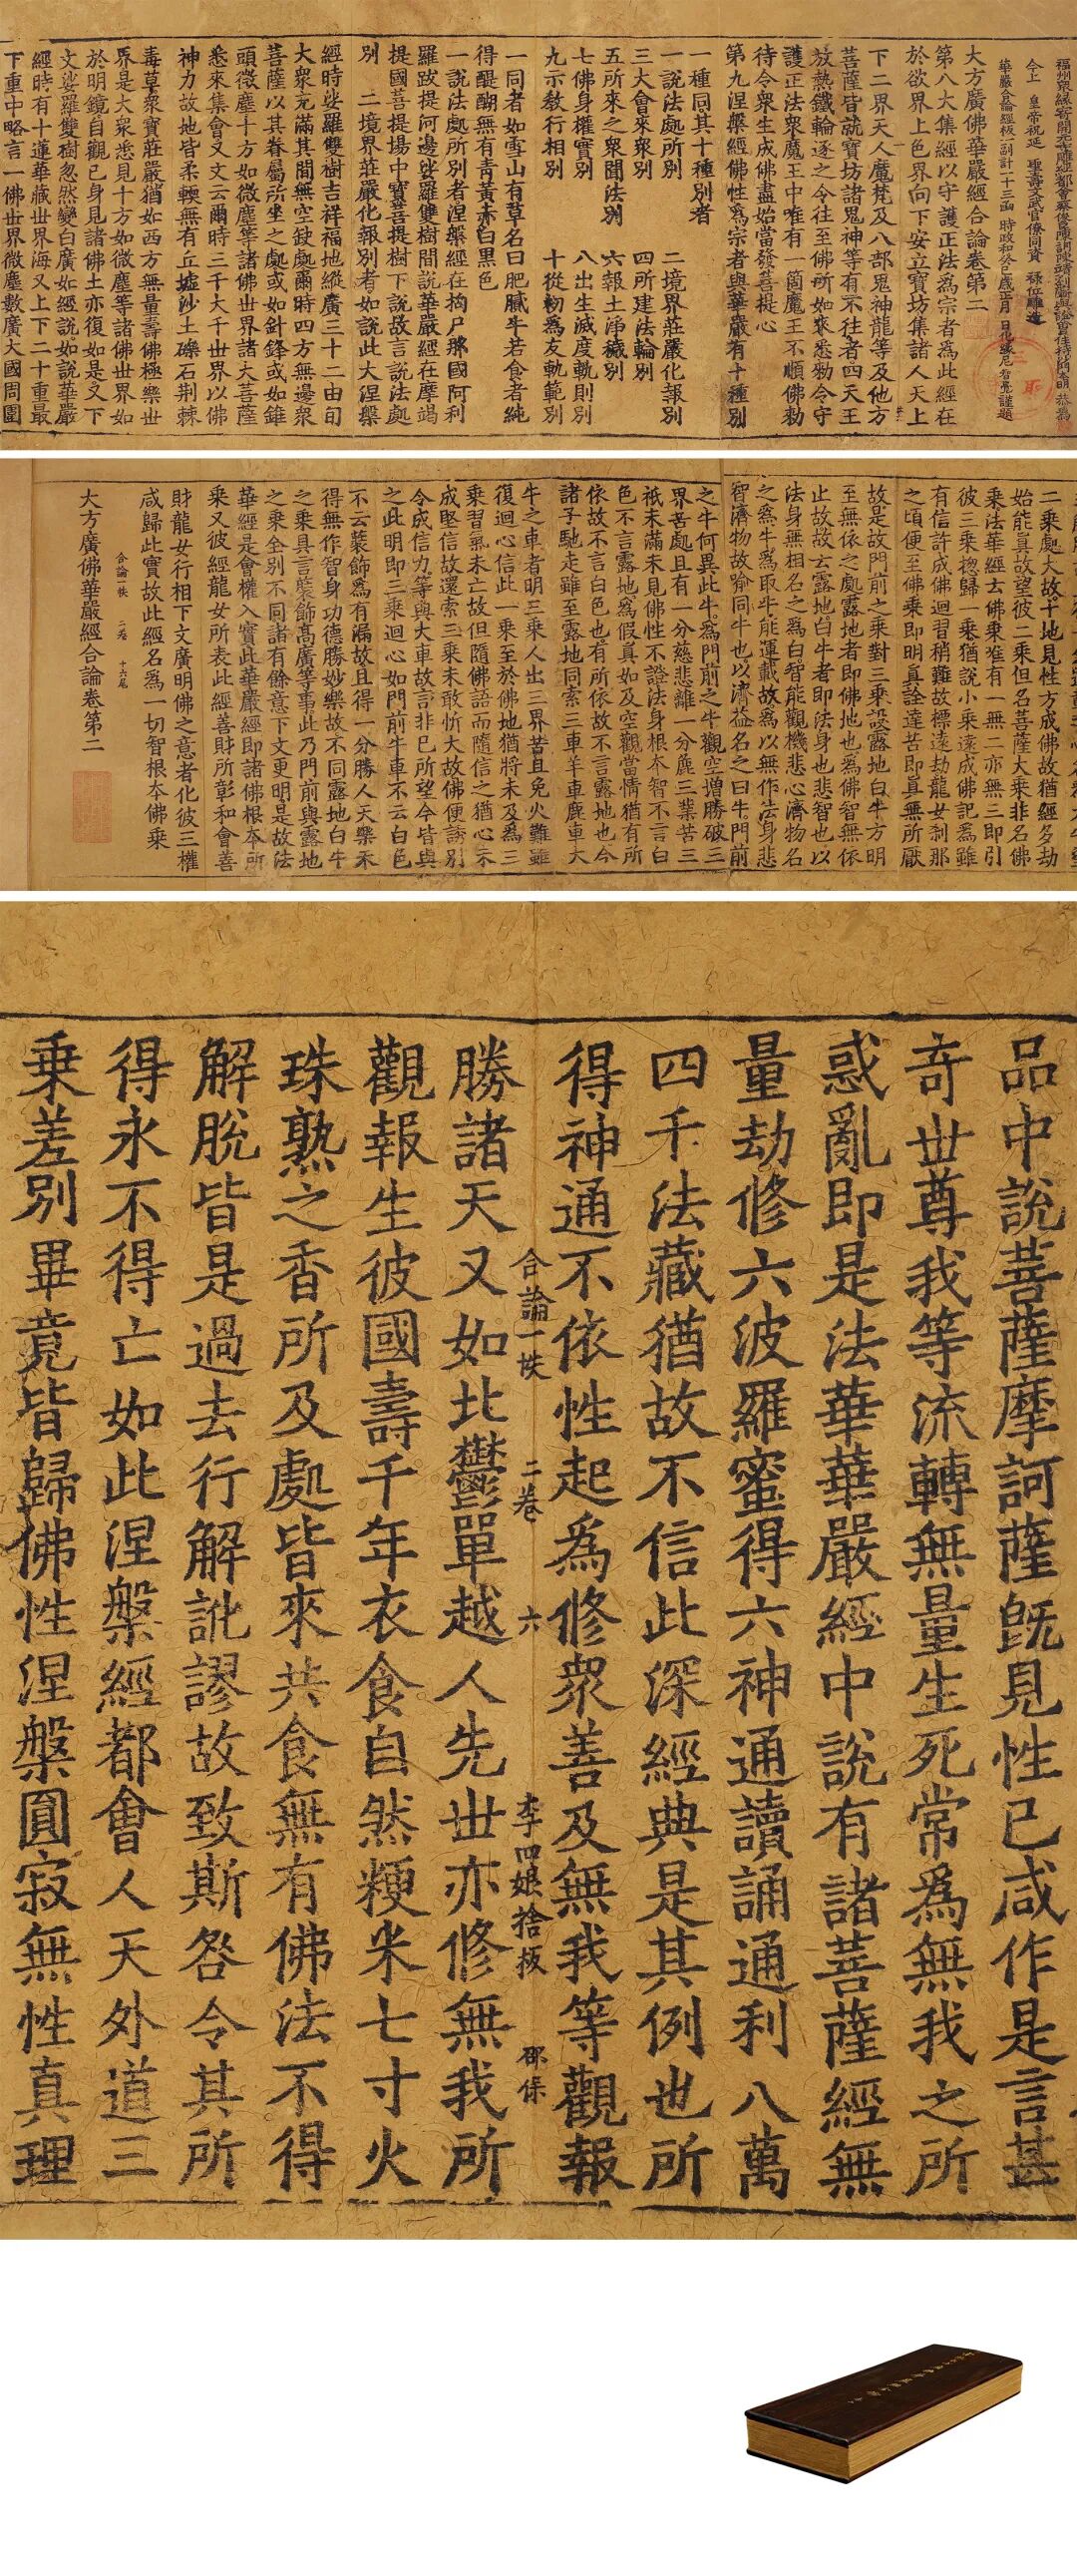 大方廣佛華嚴經合論卷第二
第八大集經以守護正法為宗者為此經在
於欲界上色界向下安立寶坊集諸人天上
下二界天人魔梵及八部鬼神龍等及他方
菩薩皆說寶坊諸鬼神等有不往者四天王
放熱鐵輪逐之令往至佛所如來悉勑令守
護正法衆魔王中唯有一箇魔王不順佛勑
待令衆生成佛盡始當發菩提心
第九涅槃經佛性為宗者與華嚴有十種別
一種同其十種別者
一說法處所別 二境界莊嚴化報別
三大會來衆別 四所建法輪別
五所來之衆聞法別 六報土淨穢別
七佛身權實別 八出生滅度軌則別
九示教行相別 十從初為友軌範別
一同者如雪山有草名曰肥膩牛若食者純
得醍醐無有青黃赤白黑色
一說法處所別者涅槃經在拘尸那國阿利
羅跋提河邊娑羅雙樹間說華嚴經在摩竭
提國菩提場中寶菩提樹下說故言說法處
別 二境界莊嚴化報別者如說此大涅槃
經時娑羅雙樹吉祥福地縱廣三十二由旬
大衆充滿其間無空缺處爾時四方無邊衆
菩薩以其眷屬所坐之處或如針鋒或如錐
頭微塵十方如微塵等諸佛世界諸大菩薩
悉來集會又文云爾時三千大千世界以佛
神力故地皆柔輭無有丘墟沙土礫石荆棘
毒草衆寶莊嚴猶如西方無量壽佛極樂世
界是大衆悉見十方如微塵等諸佛世界如
於明鏡自觀已身見諸佛土亦復如是又下
文娑羅雙樹忽然變白廣如經說如說華嚴
經時有十蓮華藏世界海又上下二十重最
下重中略言一佛世界微塵數廣大國周圍
二乘處大故十地見性方成佛故猶經多劫
始能真故望彼二乘但名菩薩大乘非名佛
乘法華經云佛乘唯有一無二亦無三即引
彼三乘揔歸一乘猶說小乘遠成佛記為雖
有信許成佛迴習稍難故標遠劫龍女刹那
之頃便至佛乘即明真詮達苦即真無所厭
故是故門前之乘對三乘設露地白牛方明
至無依之處露地者即佛地也為佛智無依
止故故云露地白牛者即法身也悲智也以
法身無相名之為白智能觀機悲心濟物名
之為牛為取牛能運載故為以無作法身悲
智濟物故喻同牛也以濟益名之曰牛門前
之牛何異此牛為門前之牛觀空增勝破三
界苦處且有一分慈悲離一分麁三業苦三
祇未滿未見佛性不證法身根本智不言白
色不言露地為假真如及空觀當情猶有所
依故不言白色也有所依故不言露地也今
諸子馳走雖至露地同索三車羊車鹿車大
牛之車者明三乘人出三界苦且免火難雖
復迴心信此一乘至於佛地猶將未及為三
乘習氣未亡故但隨佛語而隨信之猶心未
成堅信故還索三乘未敢忻大故佛便誘別
令成信力等與大車故言非已所望今皆與
之此明即三乘迴心如門前牛車不云白色
不云裝飾為有漏故且得一分勝人天樂未
得無作智身功德勝妙樂故不同露地白牛
之乘具言裝飾高廣等事此乃門前與露地
之乘全別不同諸有餘意下文更明是故法
華經是會權入實此華嚴經即諸佛根本所
乘又彼經龍女所表此經善財所彰和會善
財龍女行相下文廣明佛之意者化彼三權
咸歸此實故此經名為一切智根本佛乘
合論一帙 二卷 十六尾
大方廣佛華嚴經合論卷第二
品中說菩薩摩訶薩旣見性已咸作是言甚
奇世尊我等流轉無量生死常為無我之所
惑亂即是法華華嚴經中說有諸菩薩經無
量劫修六波羅蜜得六神通讀誦通利八萬
四千法藏猶故不信此深經典是其例也所
得神通不依性起為修衆善及無我等觀報
合論一帙 二卷 六 李四娘捨板 邵保
勝諸天又如北鬱單越人先世亦修無我所
觀報生彼國壽千年衣食自然粳米七寸火
珠熟之香所及處皆來共食無有佛法不得
解脫皆是過去行解訛謬故致斯咎令其所
得永不得亡如此涅槃經都會人天外道三
乘差別畢竟皆歸佛性涅槃圓寂無性真理